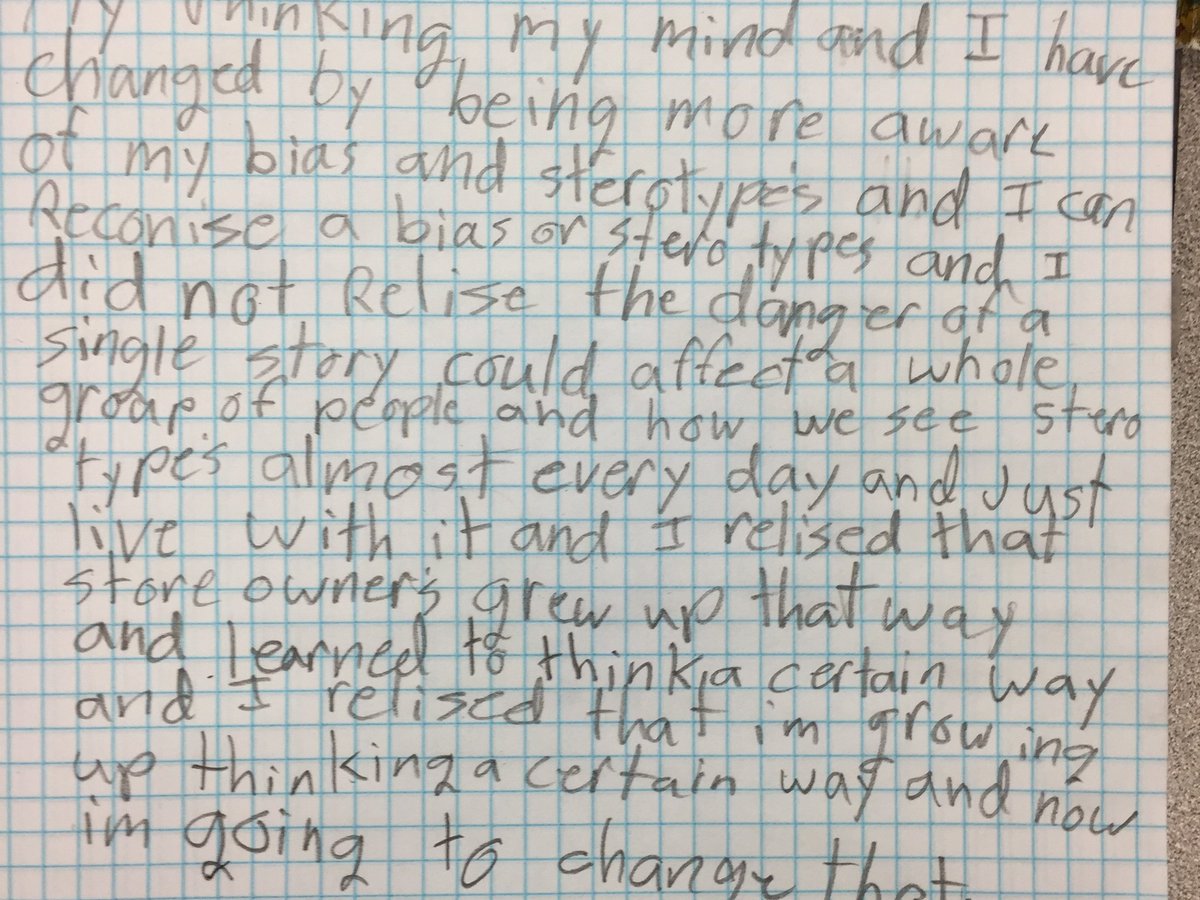 My thinking, my mind and I have
changed by being more aware
of my bias and sterotype's and I can
Reconise a bias or stero types and I
did not Relise the danger of a
single story could affect a whole
group of people and how we see stero
type's almost every day and Just
live with it and I relised that
store owner's grew up that way
and learned to think a certain way
and I relised that im growing
up thinking a certain way and now
im going to change that.